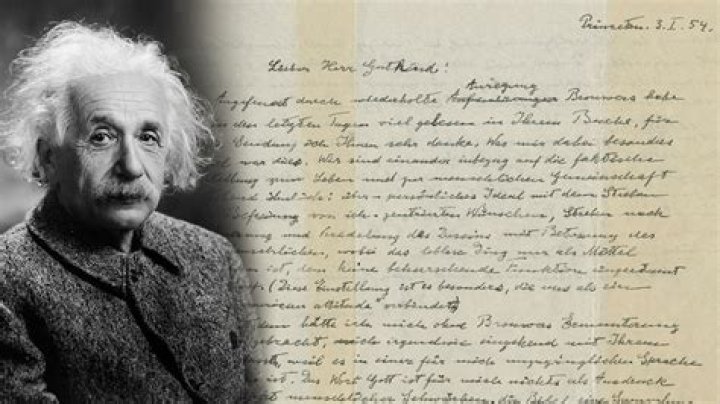 Princeton. 3. I. 54.
Lieber Herr Gutkind!
Anregung
Angefeuert durch wiederholte Brouwers habe
in den letzten Tagen viel gelesen in Ihrem Buche, für
Sendung ich Ihnen sehr danke. Was mir dabei besonders
war dies. Wir sind einander inbezug auf die faktische
zum Leben und zur menschlichen Gemeinschaft
ähnlich: über-persönliches Ideal mit dem Streben
Befreiung von ich-zentrierten Wünschen, Streben nach
und Veredelung des Daseins mit Betonung des
wobei das leblose Ding nur als Mittel
ist, dem keine beherrschende Funktion eingeräumt
(Diese Einstellung ist es besonders, die uns als ein
attitude" verbindet)
hätte ich mich ohne Brouwers Ermunterung
gebracht, mich irgendwie eingehend mit Ihrem
weil es in einer für mich unzugänglichen Sprache
ist. Das Wort Gott ist für mich nichts als Ausdruck
menschlicher Schwächen, die Bibel eine Sammlung